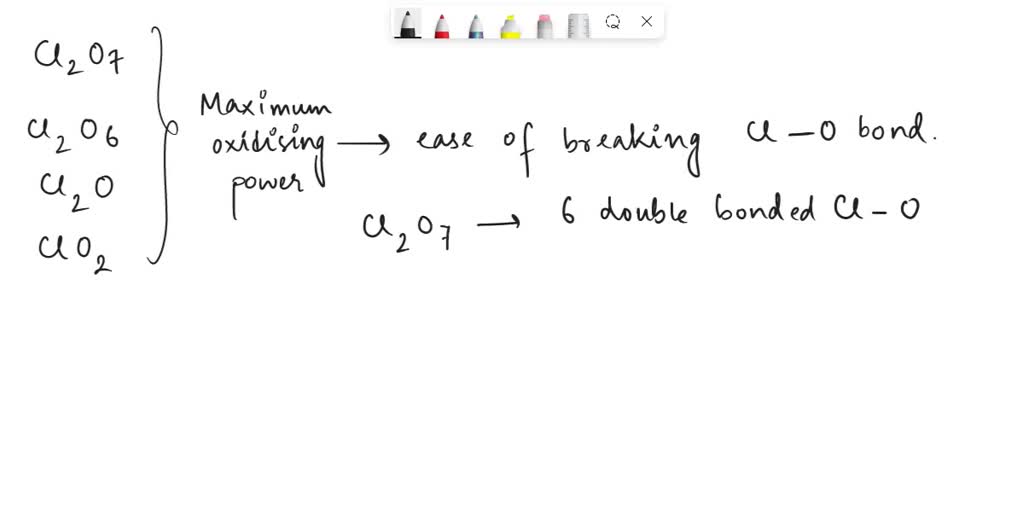 Cl₂O₇
Cl₂O₆
Cl₂O
ClO₂
Maximum
oxidising
power
→ ease of breaking Cl – O bond.
Cl₂O₇ → 6 double bonded Cl – O